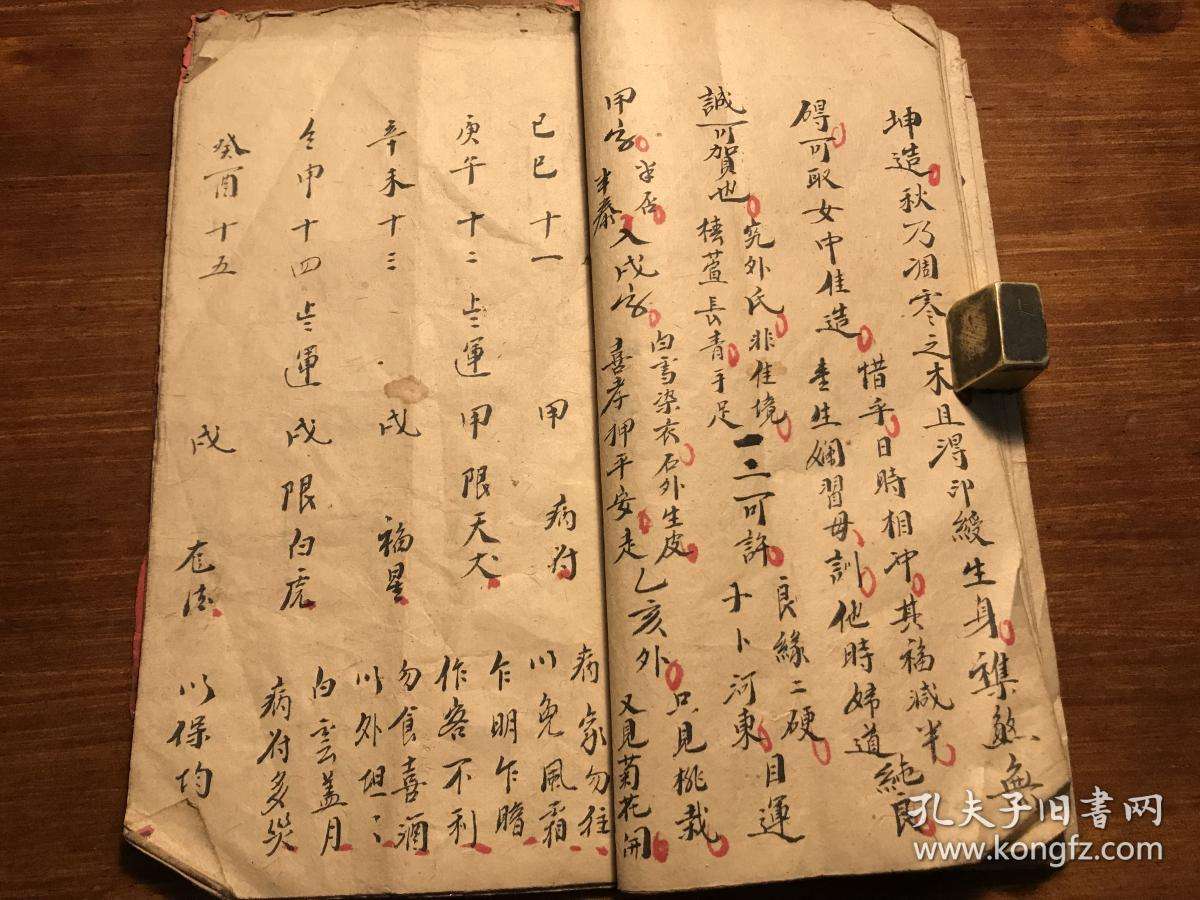 坤造秋乃凋零之木且得印綬生身雜煞無
碍可取女中佳造惜乎日時相冲其福減半
生嫻習母訓他時婦道純良
誠可賀也究外氏非佳境
椿萱長青手足一二可許良緣二硬
卜河東目運
甲字半否半泰入戌字白雪染衣石外生皮
喜孝押平安走乙亥外只見桃栽
又見菊花開
己巳十一 甲 病符 病家勿往
以免風霜
庚午十二 上运運 甲 限天犬 乍明乍暗
作客不利
辛未十三 戌 福星 勿食喜酒
以外坦々
壬申十四 運 戌 限白虎 白雲盖月
病符多災
癸酉十五 戌 以保均
孔夫子旧书网
www.kongfz.com